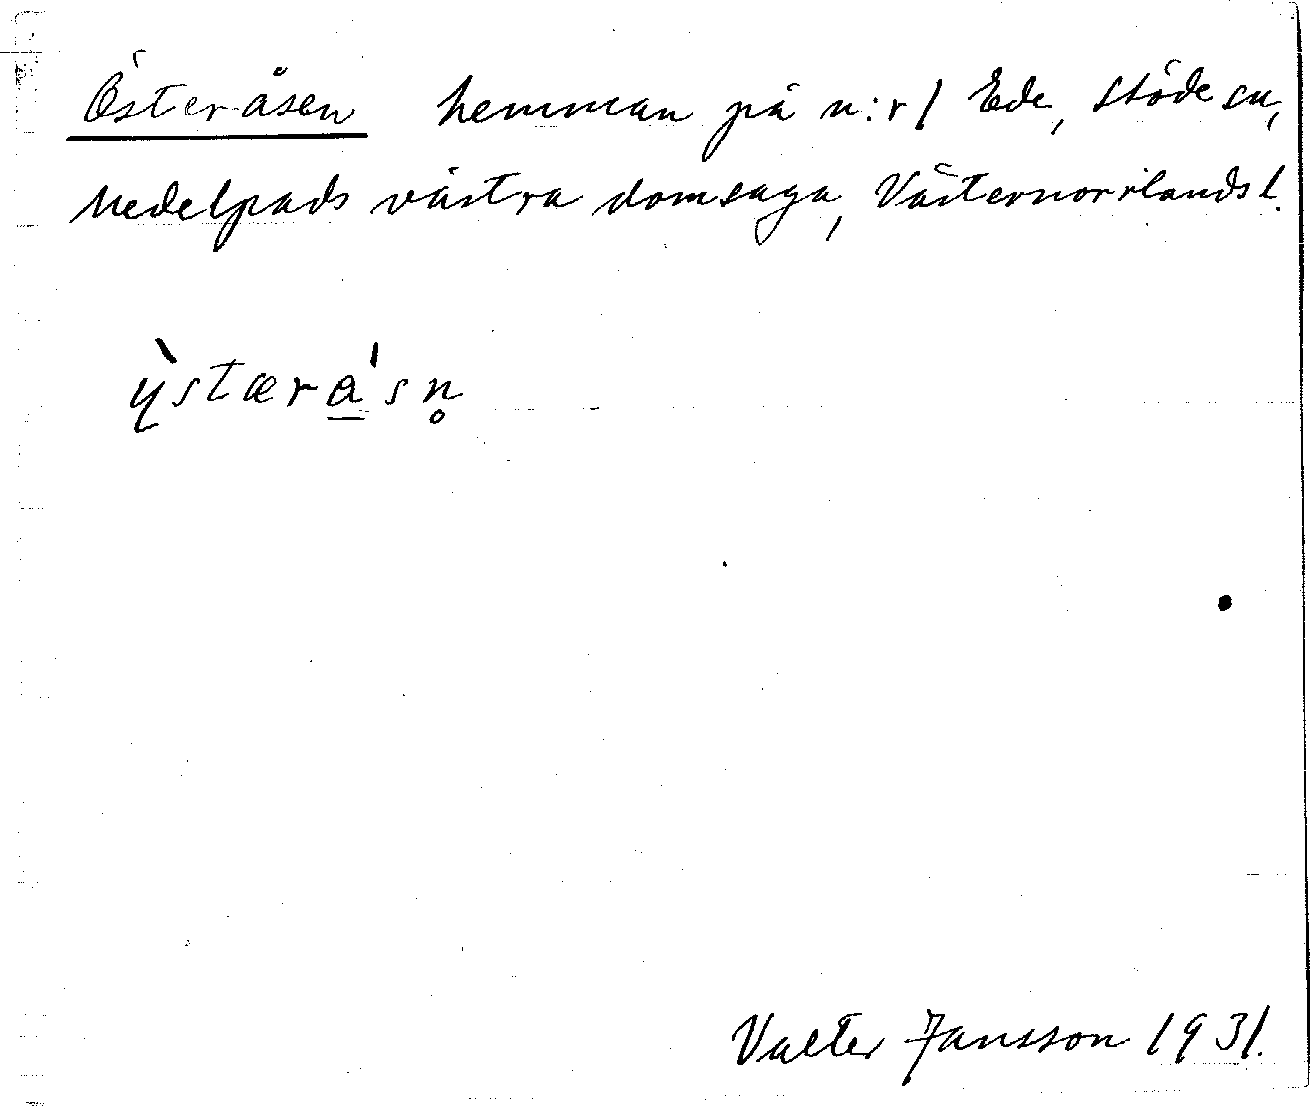 Österåsen hemman på n:r 1 Ede, Stöde sn,
Medelpads västra domsaga, Västernorrlands l.
ỳ̨stæra̲'sn̥
Valter Jansson 1931.